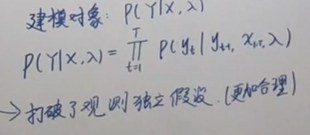 建模对象: P(Y|X,λ)
P(Y|X,λ) = ∏_{t=1}^{T} P(y_t | y_{t-1}, x_{1:T}, λ)
→ 打破了观测独立假设.(更加合理)